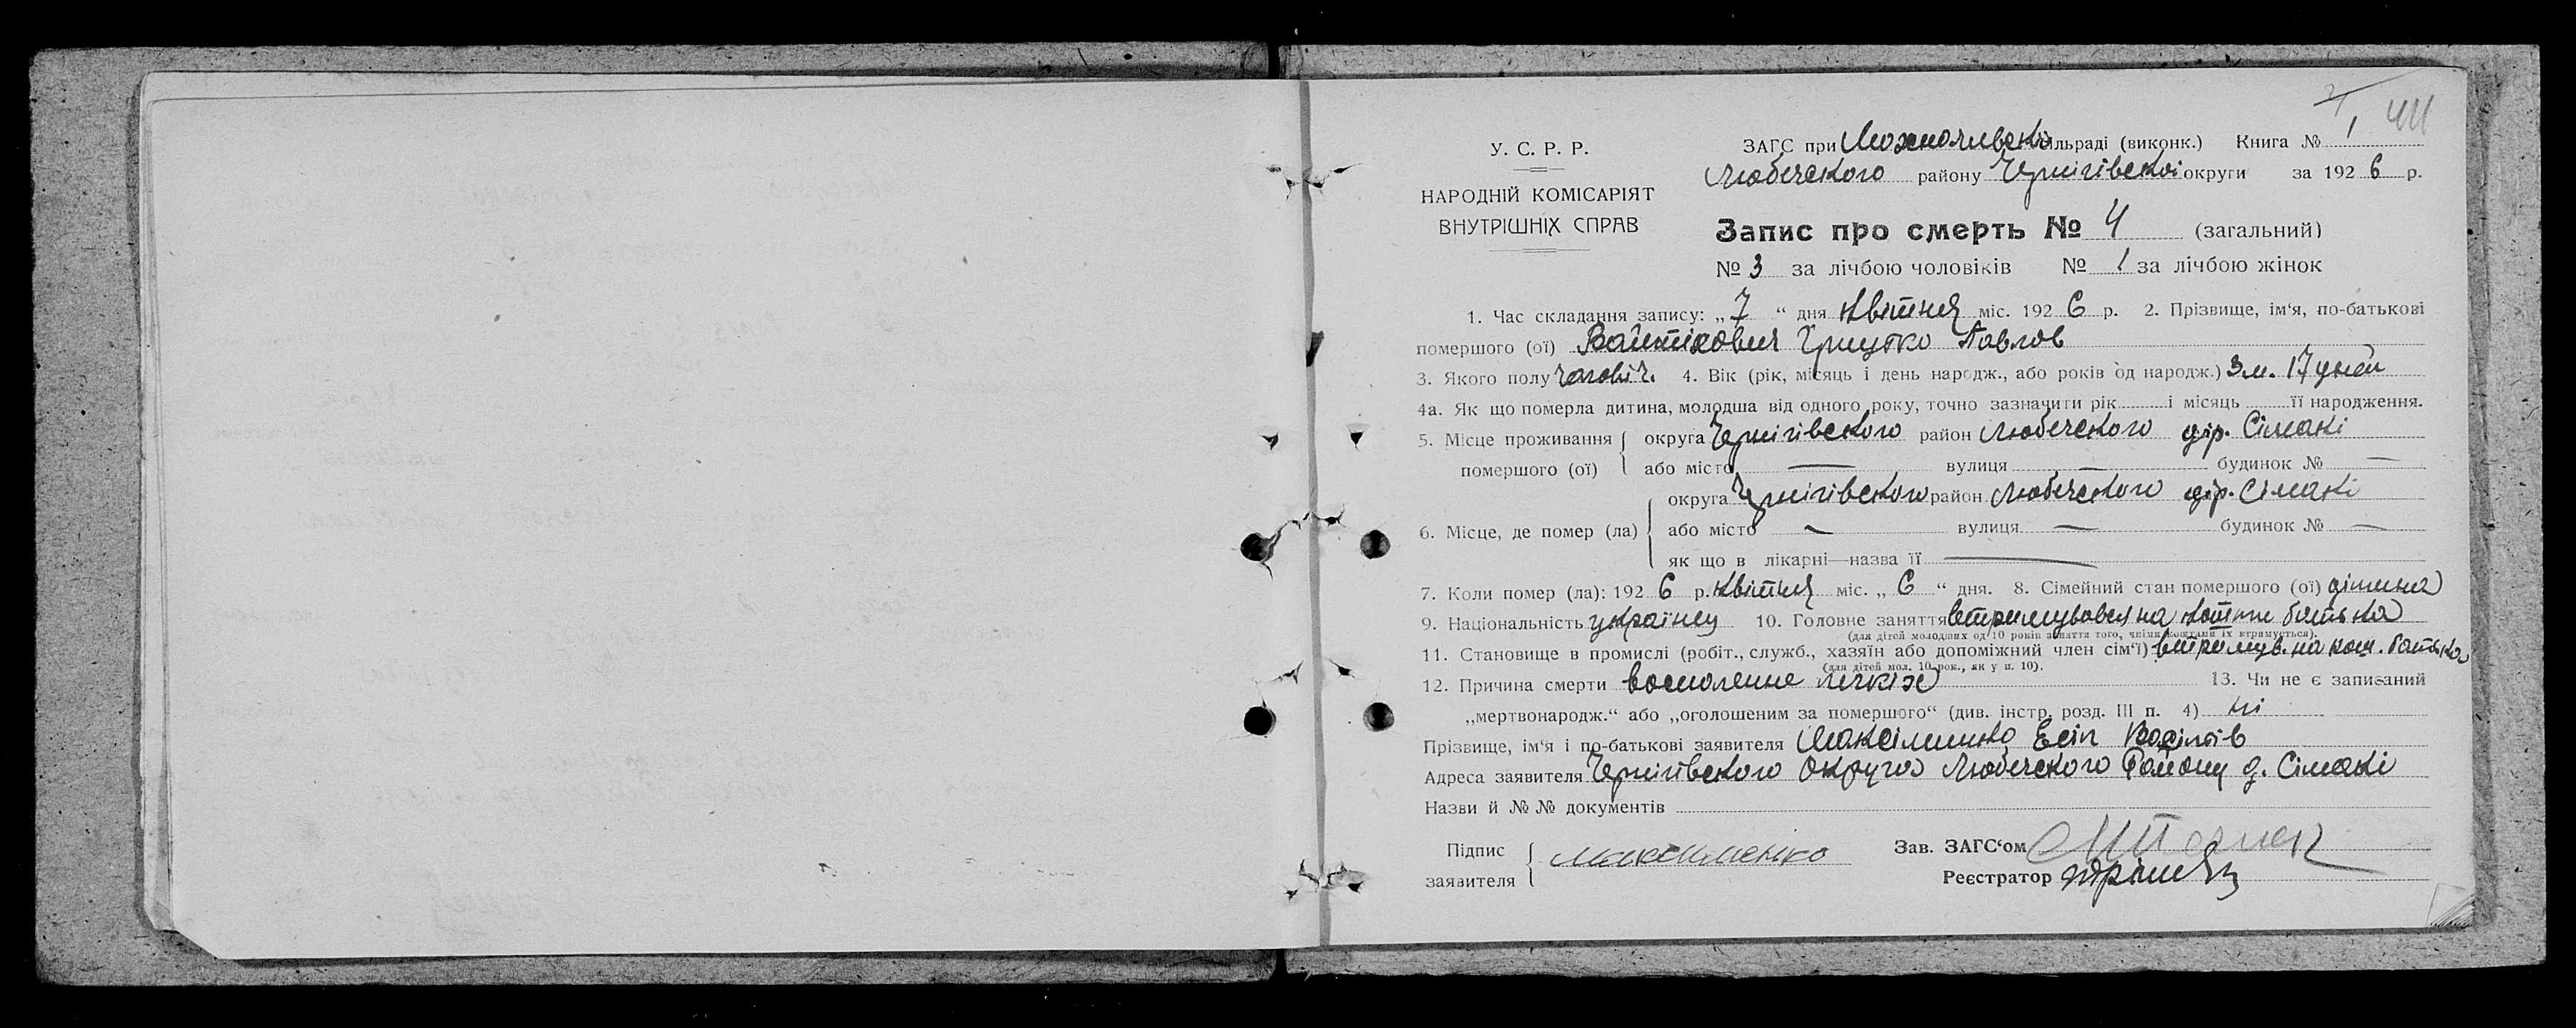 44
У. С. Р. Р.
НАРОДНІЙ КОМІСАРІЯТ
ВНУТРІШНІХ СПРАВ
ЗАГС при сільраді (виконк.) Книга № 1
Любечского району Чернігівскої округи за 1926 р.
Запис про смерть № 4 (загальний)
№ 3 за лічбою чоловіків № 1 за лічбою жінок
1. Час складання запису: „7“ дня Квітня міс. 1926 р. 2. Прізвище, ім'я, по-батькові
помершого (ої) Грицько Павлов
3. Якого полу чоловіч. 4. Вік (рік, місяць і день народж., або років од народж.) 3 м. 17 дней
4а. Як що померла дитина, молодша від одного року, точно зазначити рік і місяць її народження.
5. Місце проживання округа Чернігівского район Любечского дер. Сімакі
помершого (ої) або місто — вулиця — будинок № —
округа Чернігівского район Любечского дер. Сімакі
6. Місце, де помер (ла) або місто — вулиця — будинок № —
як що в лікарні—назва її —
7. Коли помер (ла): 1926 р. Квітня міс. „6“ дня. 8. Сімейний стан помершого (ої) дітина
9. Національність українец 10. Головне заняття втримувався на кошти батька
(для дітей молодших од 10 років заняття того, чиїми коштами їх втримується).
11. Становище в промислі (робіт., служб., хазяїн або допоміжний член сім'ї) втримув. на кош. батька
(для дітей мол. 10 рок., як у п. 10).
12. Причина смерти восполение легкіх 13. Чи не є записаний
„мертвонародж.“ або „оголошеним за помершого“ (див. інстр. розд. III п. 4) ні
Прізвище, ім'я і по-батькові заявителя Максіменко Есіп Васільів
Адреса заявителя Чернігівского Округа Любечского Району д. Сімакі
Назви й №№ документів
Підпис заявителя Максименко
Зав. ЗАГС'ом
Реєстратор